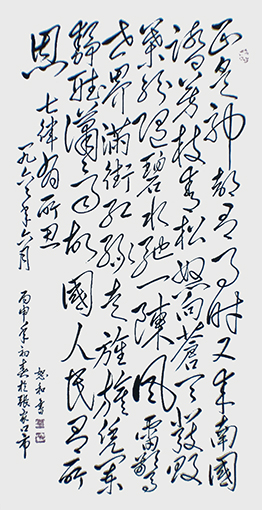 正是神都有事时又来南國
踏芳枝青松怒向蒼天發败
葉纷随碧水驰一陣風雷驚
世界满街红绿走旌旗凭阑
靜聽瀟瀟雨故國人民有所
思
七律 有所思
一九六六年六月
丙申年初春於張家口市
恕和書